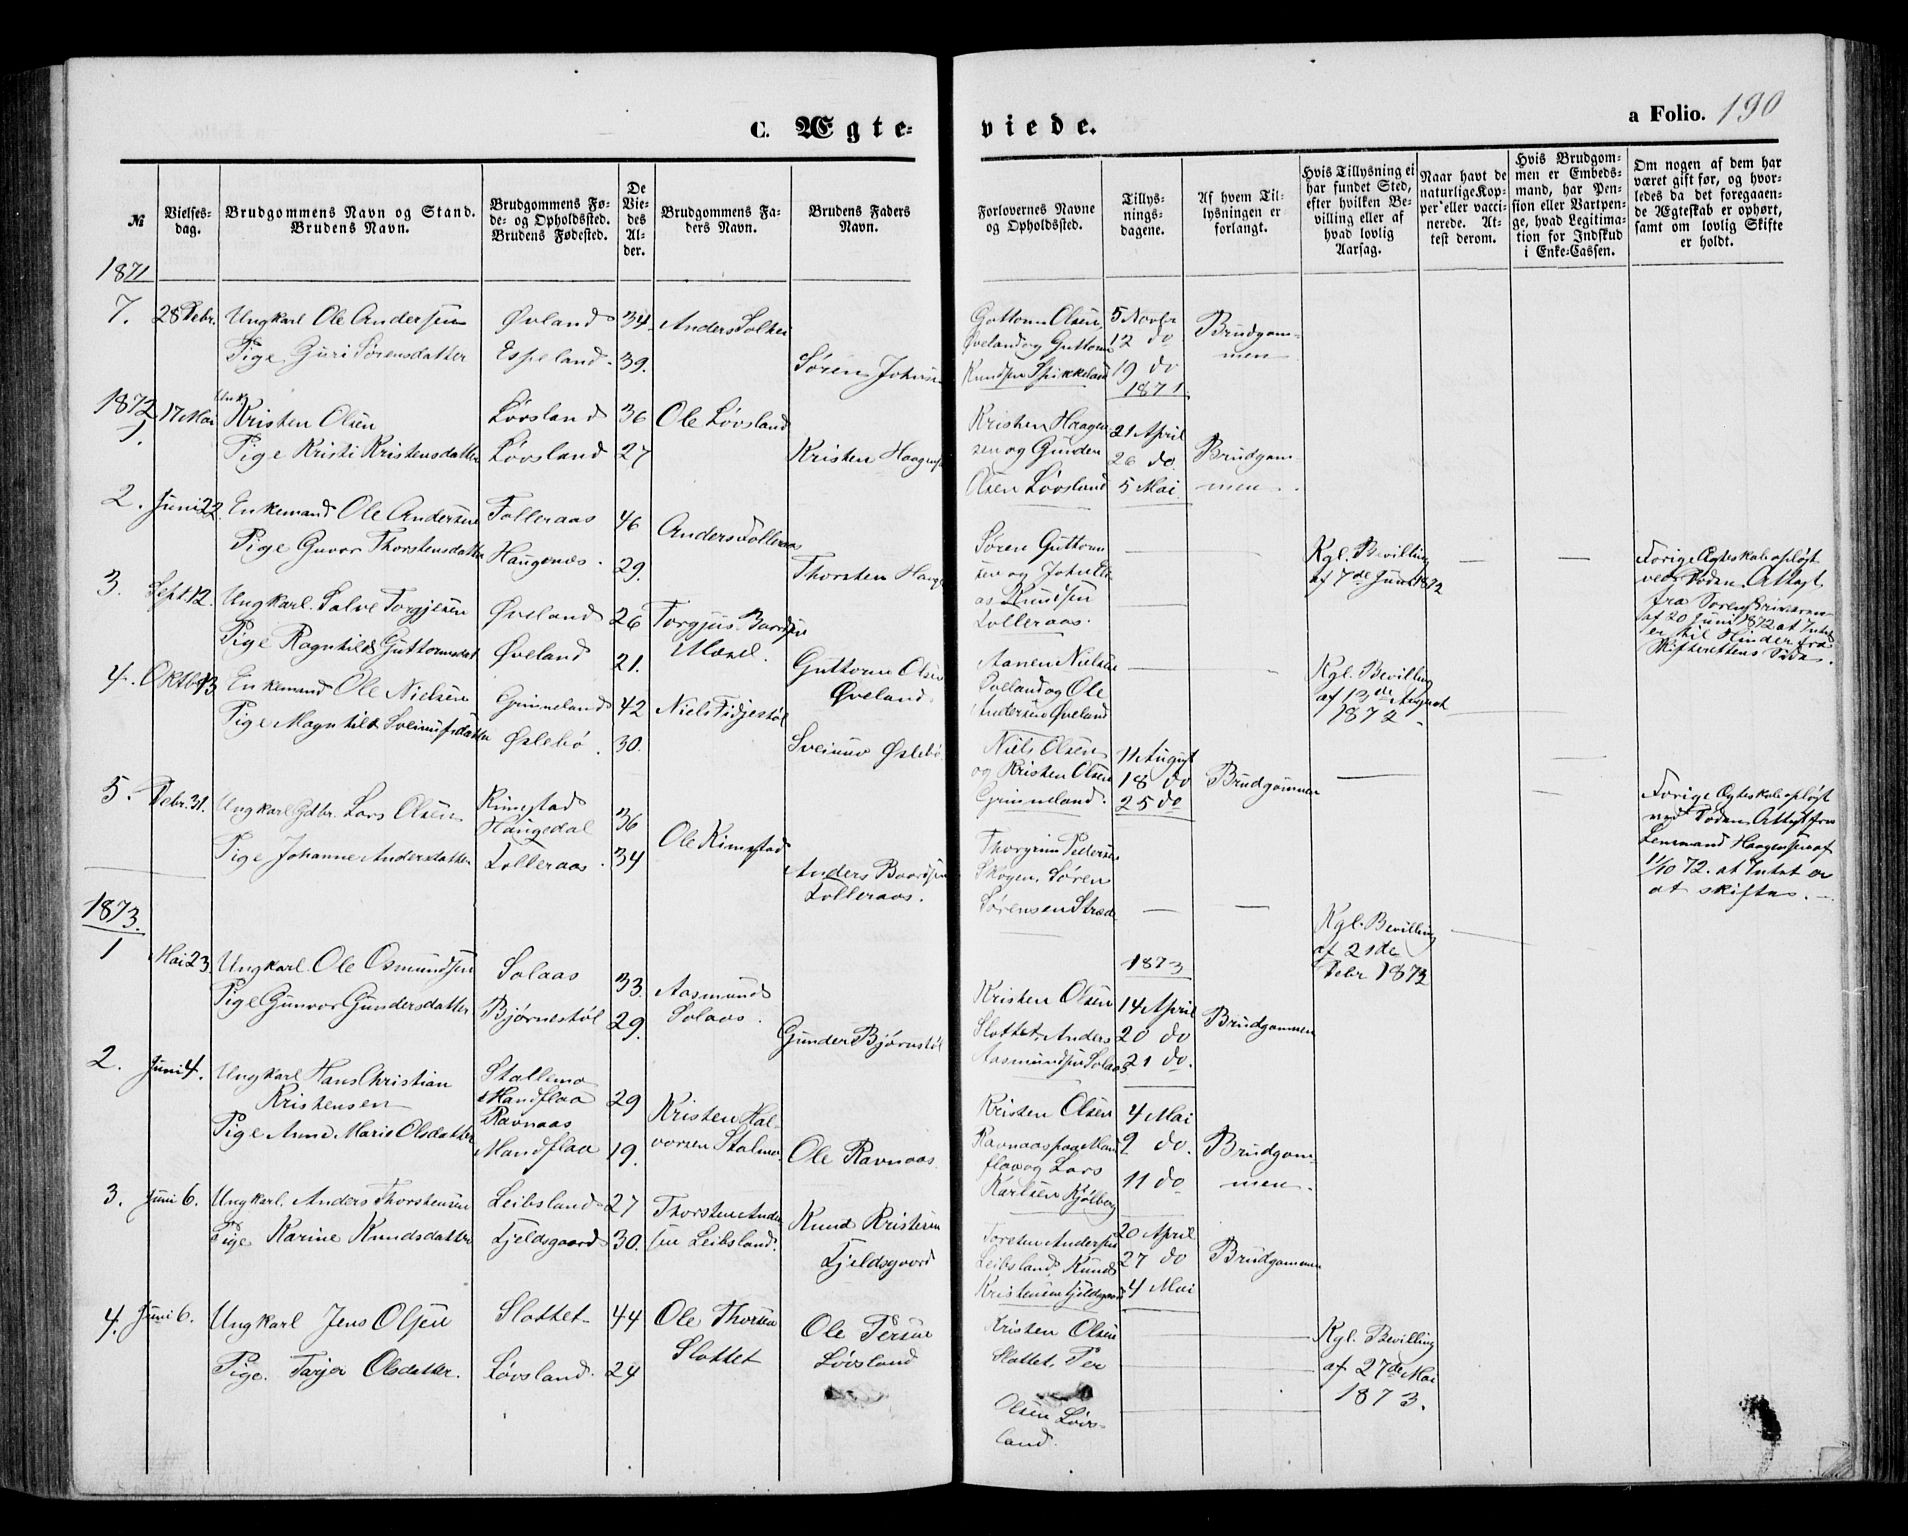 C. Ægte-
viede.
a Folio. 190
№
Vielses-
dag.
Brudgommens Navn og Stand.
Brudens Navn.
Brudgommens Fø-
de- og Opholdssted.
Brudens Fødested.
De
Vie-
des
Al-
der.
Brudgommens Fa-
ders Navn.
Brudens Faders
Navn.
Forlovernes Navne
og Opholdssted.
Tillys-
nings-
dagene.
Af hvem Til-
lysningen er
forlangt.
Hvis Tillysning ei
har fundet Sted,
efter hvilken Be-
villing eller af
hvad lovlig
Aarsag.
Naar havt de
naturlige Kop-
per eller vacci-
nerede. At-
test derom.
Hvis Brudgom-
men er Embeds-
mand, har Pen-
sion eller Vartpen-
ge, hvad Legitima-
tion for Indskud
i Enke-Cassen.
Om nogen af dem har
været gift før, og hvor-
ledes da det foregaaen-
de Ægteskab er ophørt,
samt om lovlig Skifte
er holdt.
1871
7. 28 Febr. Ungkarl Ole Andersen Øvland 34. Anders
Pige Guri Sørensdatter Espeland. 39. Søren
Guttorm Olsen
Øveland og Guttorm
Knudsen Spikkeland
5 Novbr
12 do
19 do
1871
Brudgom-
men
1872
1. 17 Mai Kristen Olsen Løvsland 36 Ole Løvsland
Pige Kristi Kristensdatter Løvsland 27 Kristen Haagens
Kristen Haagen-
sen og Gunder
Olsen Løvsland
21 April
26 do.
5 Mai
Brudgom
men.
2. Juni 22. Enkemand Ole Andersen Tolleraas 46 Anders Tolleraas
Pige Guvor Thorstensdatter Haugenæs. 29. Thorsten
Søren Guttorm
sen og
Knudsen
Tolleraas.
Kgl. Bevilling
af 7de Juni 1872
Forrige Ægteskab opløst
ved Døden. Attest
fra Søren
af 20 Juni 1872 at Intet
er til Hinder fra
Skifterettens Side.
3. Sept 12. Ungkarl. Salve Torgjesen Øveland 26 Torgjus Baardsen
Mæsel.
Pige Ragnhild Guttormsdat Øveland 21. Guttorm Olsen
Øveland.
Aanen Nielsen
Øveland og Ole
Andersen Øveland
Kgl. Bevilling
af 13de August
1872 -
4. Oktbr 13 Enkemand Ole Nielsen Grimeland 42 Niels Fidjestøl
Pige Magnhild Sveinusdatter Øslebø. 30. Sveinuv Øslebø.
Niels Olsen
og Kristen Olsen
Grimeland.
11 August
18 do
25 do
Brudgommen
Forrige Ægteskab opløst
ved Døden. Attest fra
Lensmand Haagensen af
1/10 72. at Intet er
at skifte. -
5. Febr. 31. Ungkarl Gdbr. Lars Olsen Rimstad
Haugedal 36 Ole Rimstad
Pige Johanne Andersdatter Tolleraas. 34 Anders Baardsen
Tolleraas.
Thorgrim Pedersen
Skogen, Søren
Sørensen
Kgl. Bevilling
af 21de
Febr 1872
1873.
1 Mai 23. Ungkarl. Ole Osmundsen Solaas 33. Aasmund
Solaas.
Pige Gunvor Gundersdatter Bjørnestøl 29. Gunder Bjørnestøl
Kristen Olsen
Slottet, Anders
Aasmundsen Solaas
1873
14 April
20 do
21 do.
Brudgommen
2. Juni 4. Ungkarl Hans Christian
Kristensen Stallemo
Mandflaa 29 Kristen Hal-
vorsen Stalmo.
Pige Anne Marie Olsdatter Ravnaas
Mandflaa 19. Ole Ravnaas
Kristen Olsen
Ravnaas paa Mand
flaa og Lars
Karlsen Kjølberg
4 Mai
9 do.
11 do
Brudgom-
men.
3. Juni 6. Ungkarl. Anders Thorstensen Leibsland 27 Thorsten Ander
sen Leibsland.
Pige Karine Knudsdatter Fjeldsgaard 30. Knud Kristensen
Fjeldsgaard
Torsten Andersen
Leibsland, Knud
Kristensen Fjeldsgaard
20 April
27 do
4 Mai
Brudgommen
4. Juni 6. Ungkarl Jens Olsen Slottet 44 Ole Thorsen
Slottet
Pige. Tarjer Olsdatter. Løvsland. 24 Ole Persen
Løvsland
Kristen Olsen
Slottet, Per
Olsen Løvs-
land.
Kgl. Bevilling
af 27de Mai
1873.